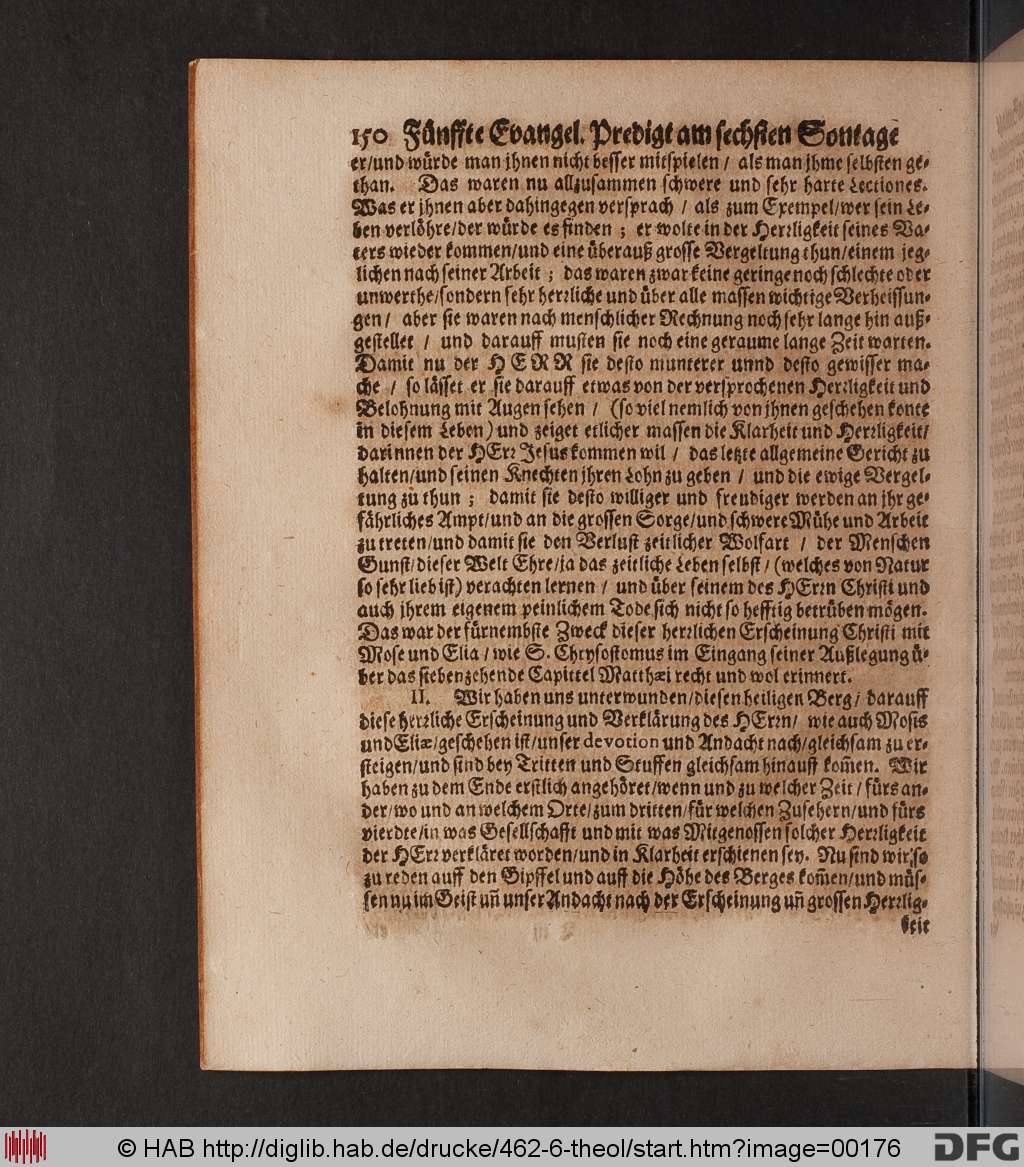 150 Fünffte Evangel. Predigt am sechsten Sontage
er/und würde man jhnen nicht besser mitspielen / als man jhme selbsten ge-
than. Das waren nu allzusammen schwere und sehr harte Lectiones.
Was er jhnen aber dahingegen versprach / als zum Exempel/wer sein Le-
ben verlöhre/der würde es finden ; er wolte in der Herrligkeit seines Va-
ters wieder kommen/und eine überauß grosse Vergeltung thun/einem jeg-
lichen nach seiner Arbeit ; das waren zwar keine geringe noch schlechte oder
unwerthe/sondern sehr herrliche und über alle massen wichtige Verheissun-
gen / aber sie waren nach menschlicher Rechnung noch sehr lange hin auß-
gestellet / und darauff musten sie noch eine geraume lange Zeit warten.
Damit nu der HERR sie desto munterer unnd desto gewisser ma-
che / so lässet er sie darauff etwas von der versprochenen Herrligkeit und
Belohnung mit Augen sehen / (so viel nemlich von jhnen geschehen konte
in diesem Leben) und zeiget etlicher massen die Klarheit und Herrligkeit/
darinnen der HErr Jesus kommen wil / das letzte allgemeine Gericht zu
halten/und seinen Knechten jhren Lohn zu geben / und die ewige Vergel-
tung zu thun ; damit sie desto williger und freudiger werden an jhr ge-
fährliches Ampt/und an die grossen Sorge/und schwere Mühe und Arbeit
zu treten/und damit sie den Verlust zeitlicher Wolfart / der Menschen
Gunst/dieser Welt Ehre/ja das zeitliche Leben selbst / (welches von Natur
so sehr lieb ist) verachten lernen / und über seinem des HErrn Christi und
auch jhrem eigenem peinlichem Tode sich nicht so hefftig betrüben mögen.
Das war der fürnembste Zweck dieser herrlichen Erscheinung Christi mit
Mose und Elia / wie S. Chrysostomus im Eingang seiner Außlegung ü-
ber das siebenzehende Capittel Matthæi recht und wol erinnert.
II. Wir haben uns unterwunden/diesen heiligen Berg / darauff
diese herrliche Erscheinung und Verklärung des HErrn / wie auch Mosis
und Eliæ/geschehen ist/unser devotion und Andacht nach/gleichsam zu er-
steigen/und sind bey Tritten und Stuffen gleichsam hinauff kom̃en. Wir
haben zu dem Ende erstlich angehöret/wenn und zu welcher Zeit / fürs an-
der/wo und an welchem Orte/zum dritten/für welchen Zusehern/und fürs
vierdte/in was Gesellschafft und mit was Mitgenossen solcher Herrligkeit
der HErr verkläret worden/und in Klarheit erschienen sey. Nu sind wir/so
zu reden auff den Gipffel und auff die Höhe des Berges kom̃en/und müs-
sen nu im Geist uñ unser Andacht nach der Erscheinung uñ grossen Herrlig-
keit
© HAB http://diglib.hab.de/drucke/462-6-theol/start.htm?image=00176
DFG